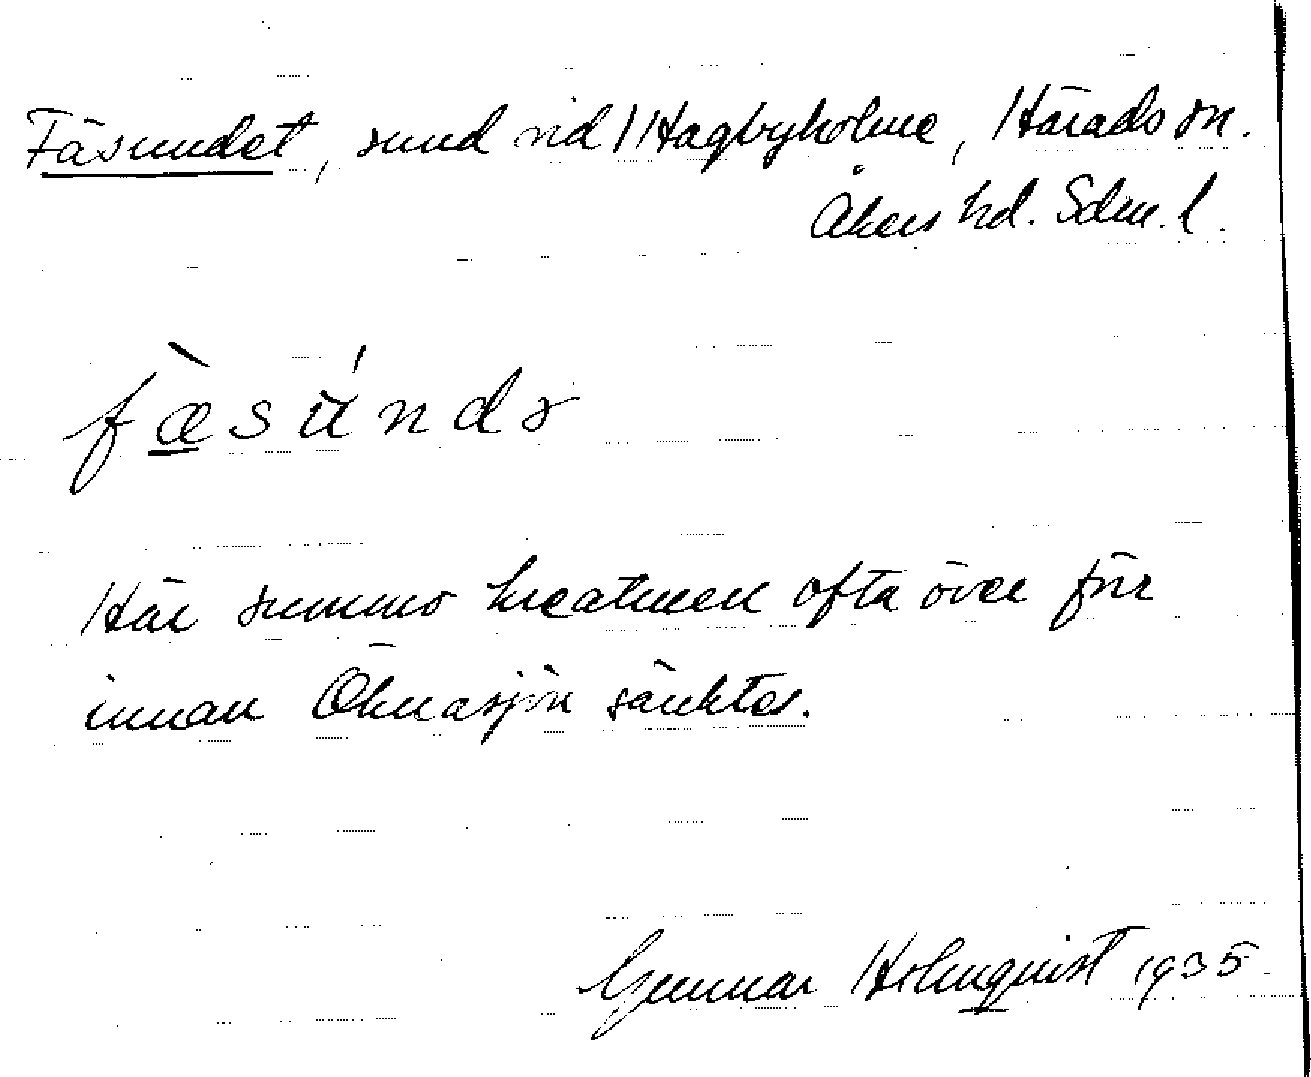 Fäsundet, sund vid Hagbyholme, Härads sn.
Åkers hd. Sdm. l.
fæ̀súndə
Här summo kreaturen ofta över förr
innan Öknasjön sänktes.
Gunnar Holmquist 1935